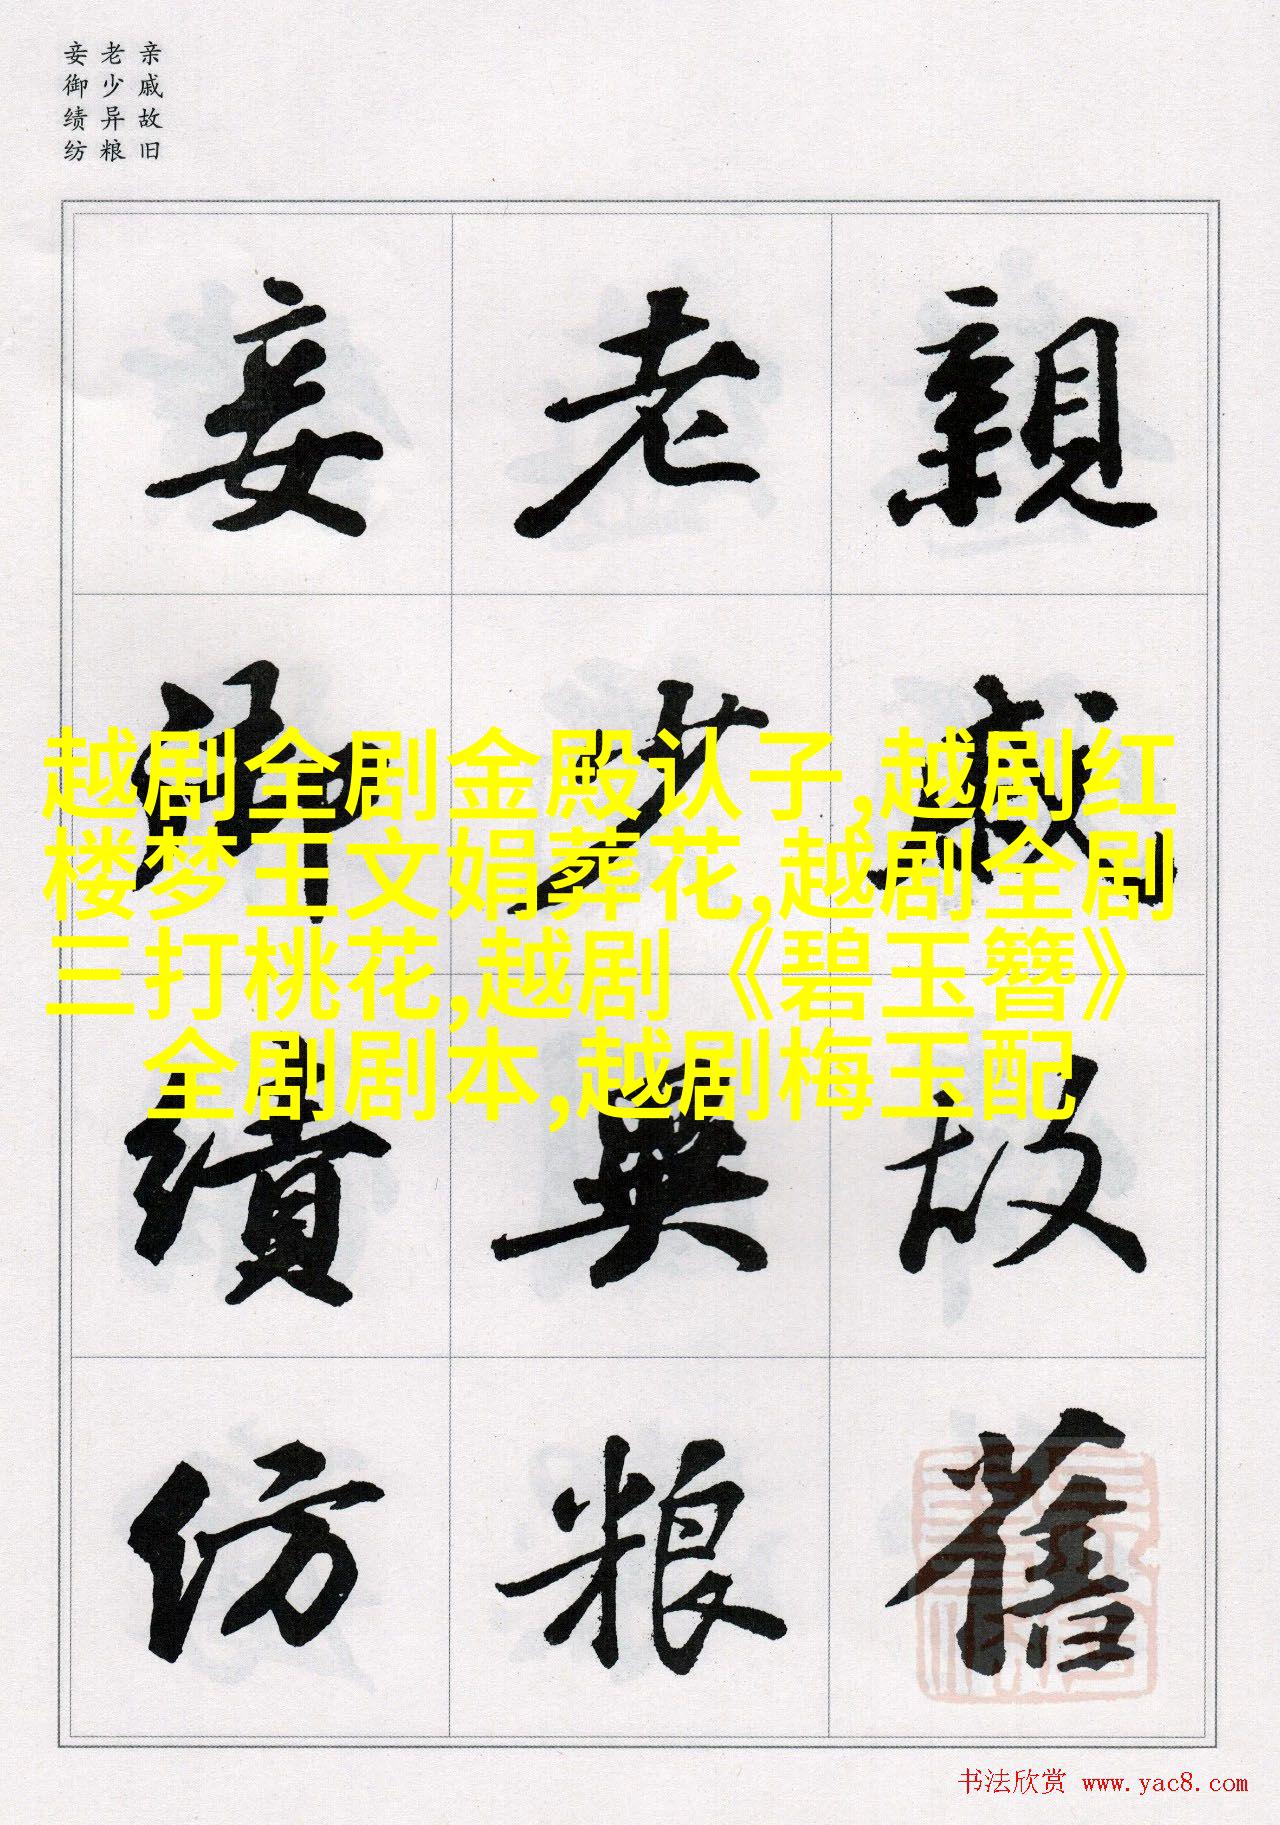 亲戚故旧
老少异粮
妾御绩纺
親戚故舊
老少異粮
妾御績紡
越剧全剧金殿认子,越剧红
楼梦王文娟葬花,越剧全剧
三打桃花,越剧《碧玉簪》
全剧剧本,越剧梅玉配
书法欣赏 www.yac8.com